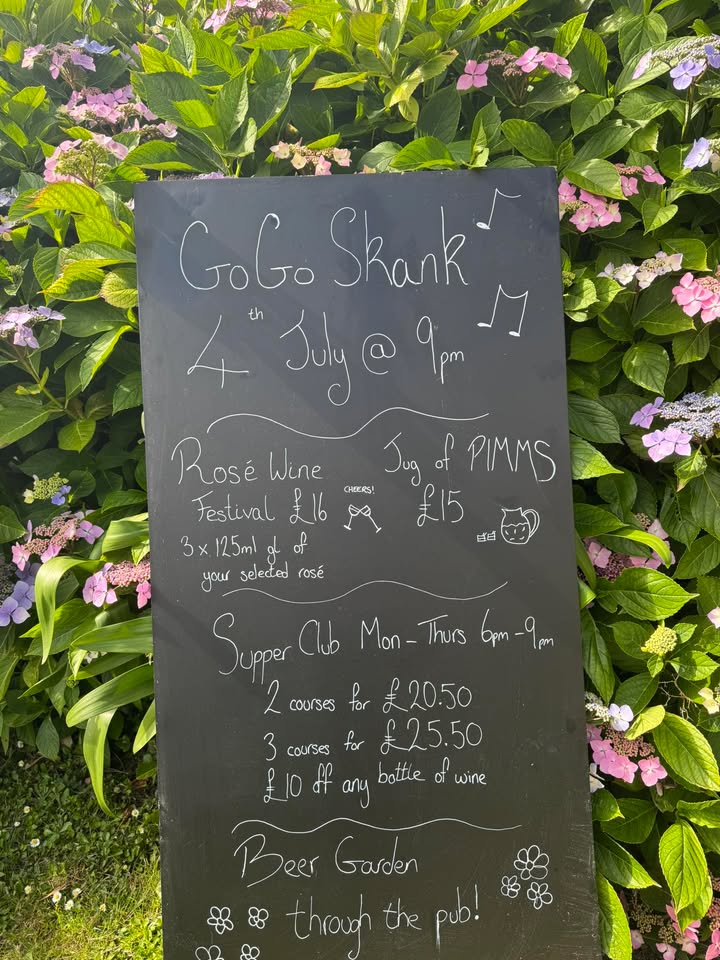 GoGo Skank
4th July @ 9pm
Rosé Wine
Festival £16
3 x 125ml gl of
your selected rosé
CHEERS!
Jug of PIMMS
£15
Supper Club Mon - Thurs 6pm - 9pm
2 courses for £20.50
3 courses for £25.50
£10 off any bottle of wine
Beer Garden
through the pub!